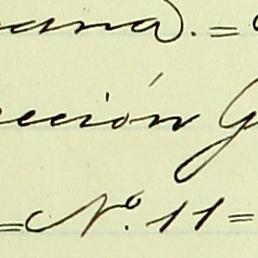 ana.=
ección G
=Nº. 11=